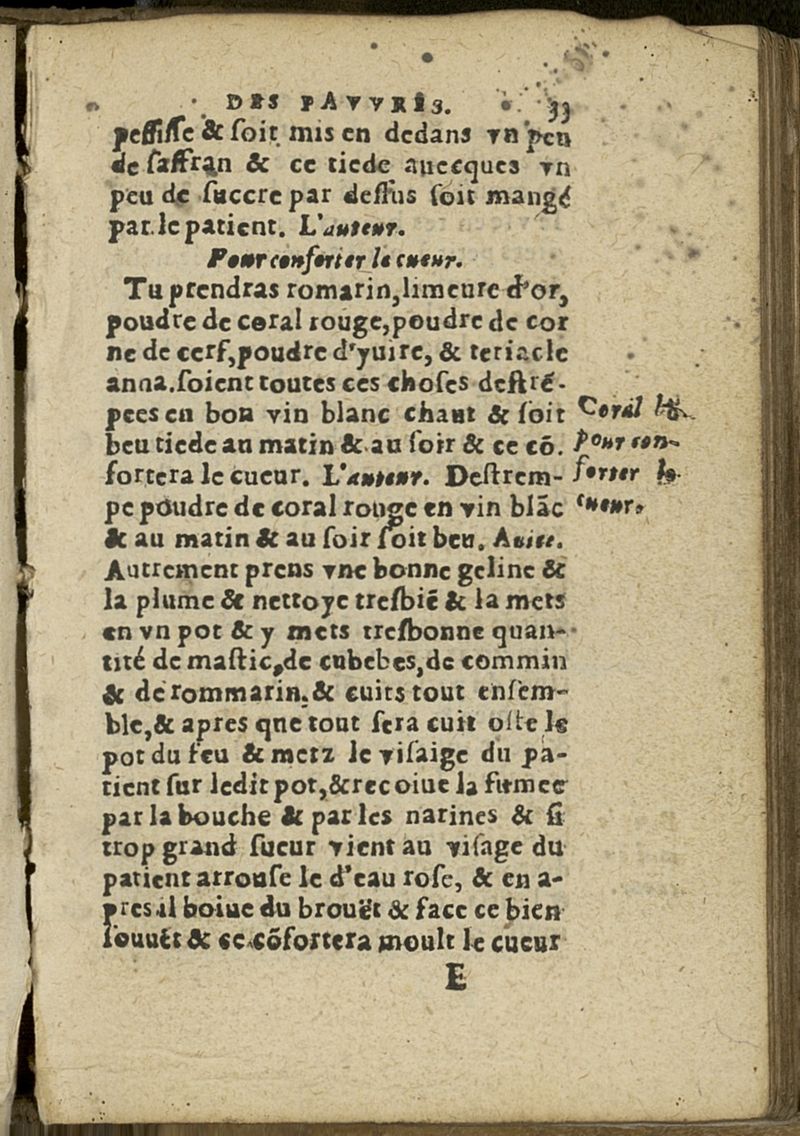 DES PAVVRES. 33
pessisse & soit mis en dedans vn peu
de saffran & ce tiede auecques vn
peu de succre par dessus soit mangé
par le patient. L'auteur.
Pour conforter le cueur.
Tu prendras romarin, limeure d'or,
poudre de coral rouge, poudre de cor
ne de cerf, poudre d'yuire, & teriacle
anna. soient toutes ces choses destré-
pees en bon vin blanc chaut & soit
beu tiede au matin & au soir & ce cõ.
fortera le cueur. L'auteur. Destrem-
pe poudre de coral rouge en vin blãc
& au matin & au soir soit beu. Auice.
Autrement prens vne bonne geline &
la plume & nettoye tresbiẽ & la mets
en vn pot & y mets tresbonne quan-
tité de mastic, de cubebes, de commin
& de rommarin, & cuits tout ensem-
ble, & apres que tout sera cuit oste le
pot du feu & metz le visaige du pa-
tient sur ledit pot, & recoiue la fumee
par la bouche & par les narines & si
trop grand sueur vient au visage du
patient arrouse le d'eau rose, & en a-
pres il boiue du brouët & face ce bien
souuẽt & ce cõfortera moult le cueur
E
Coral
Pour con-
forter le
cueur.